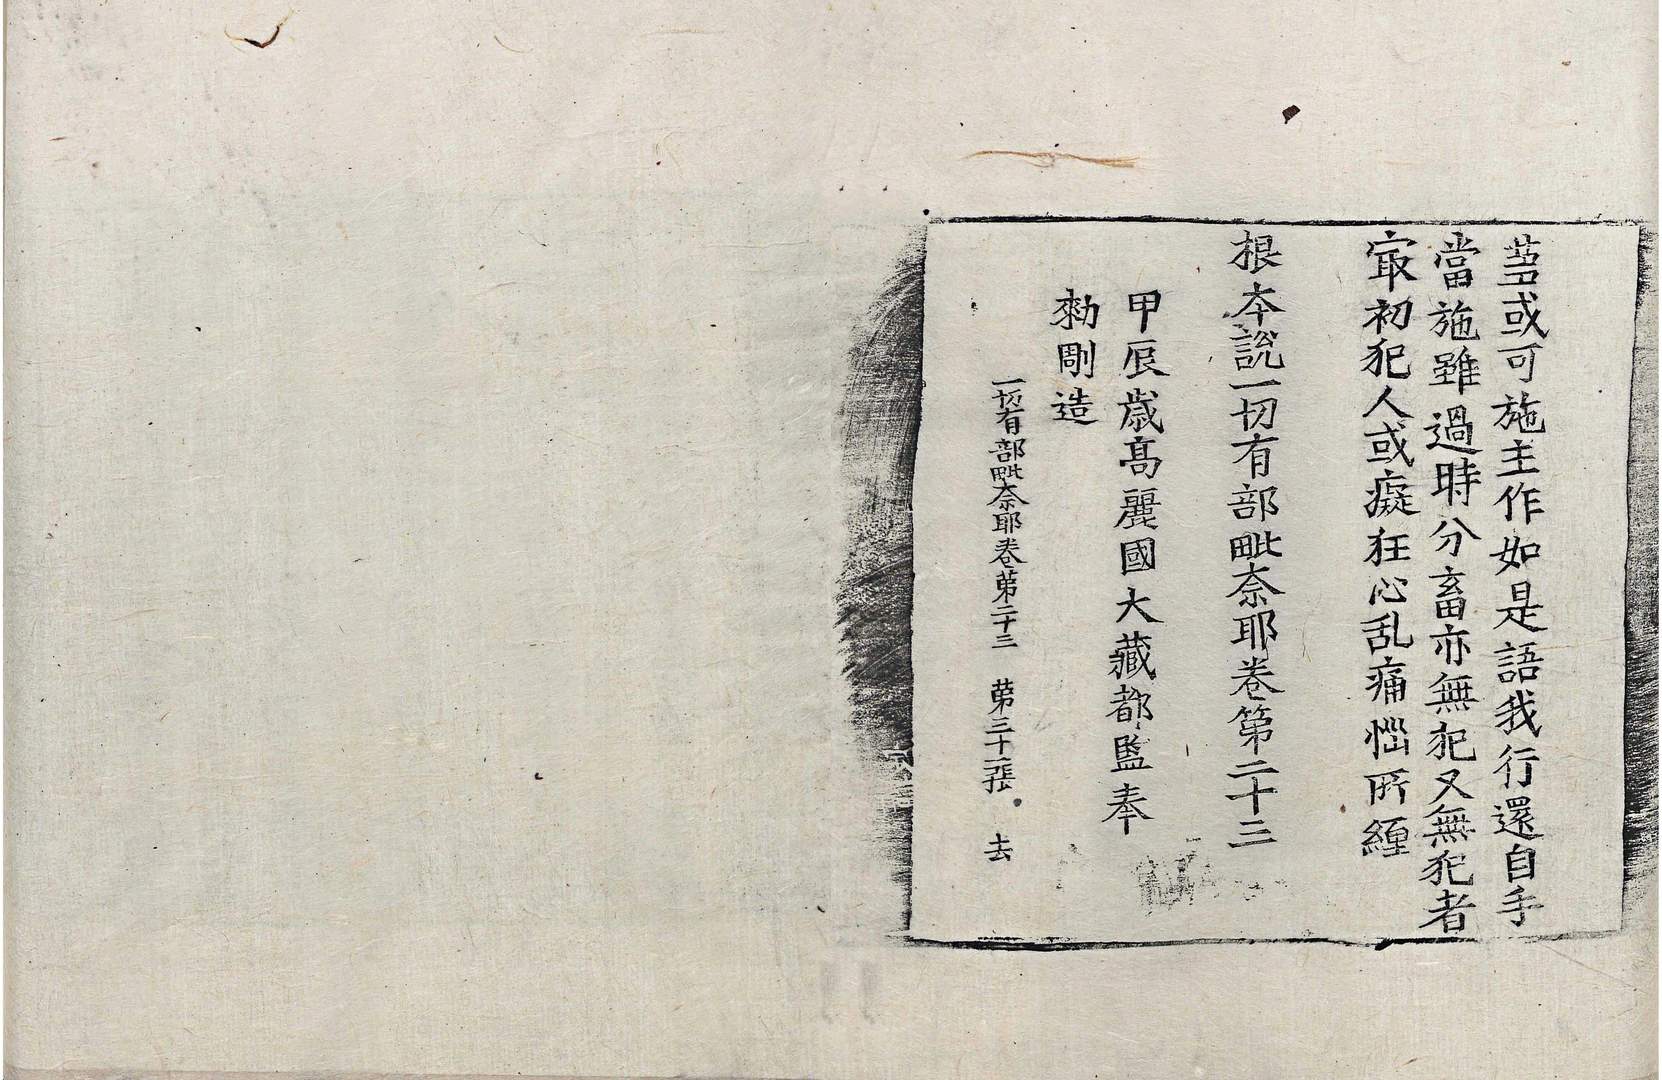 䒭或可施主作如是語我行還自手
當施雖過時分畜亦無犯又無犯者
㝡初犯人或癡狂心乱痛惱所纏
根本說一切有部毗奈耶卷第二十三
甲辰歲高麗國大藏都監奉
勑彫造
一切有部毗奈耶卷第二十三　第三十二張　去